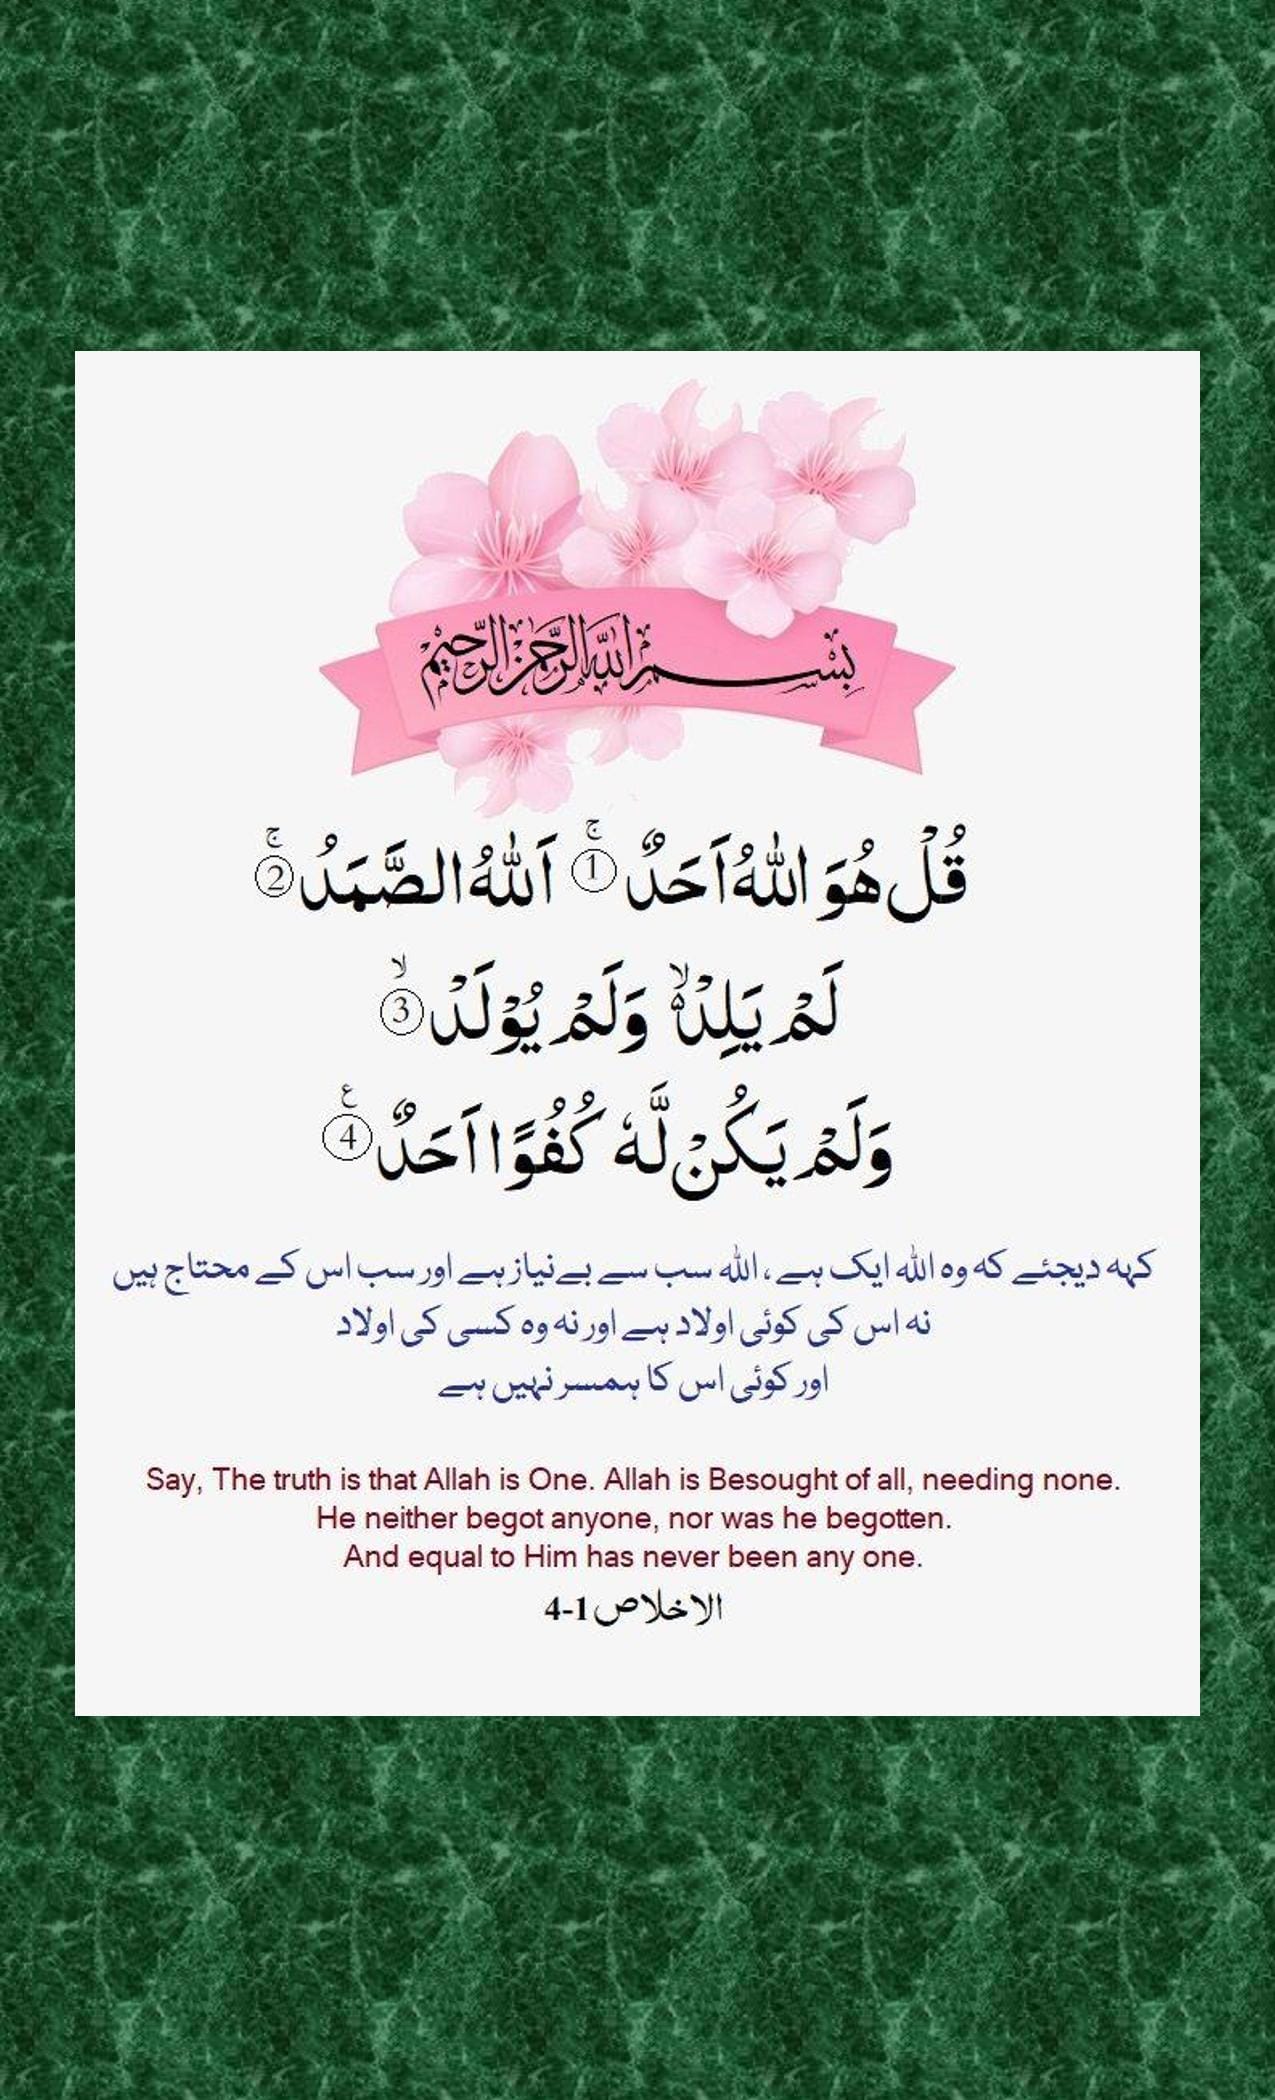 بِسْمِ اللّٰهِ الرَّحْمٰنِ الرَّحِيْمِ
قُلْ هُوَ اللّٰهُ اَحَدٌ ۚ ① اَللّٰهُ الصَّمَدُ ۚ ②
لَمْ يَلِدْ ۙ۬ وَلَمْ يُوْلَدْ ۙ ③
وَلَمْ يَكُنْ لَّهٗ كُفُوًا اَحَدٌ ۧ ④
کہہ دیجئے کہ وہ اللہ ایک ہے، اللہ سب سے بے نیاز ہے اور سب اس کے محتاج ہیں
نہ اس کی کوئی اولاد ہے اور نہ وہ کسی کی اولاد
اور کوئی اس کا ہمسر نہیں ہے
Say, The truth is that Allah is One. Allah is Besought of all, needing none.
He neither begot anyone, nor was he begotten.
And equal to Him has never been any one.
الاخلاص 1-4